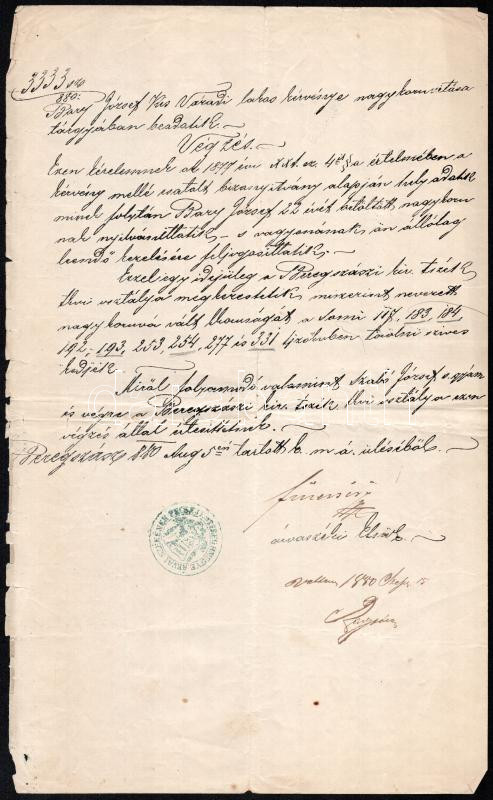 3333
880.
Bary József Kis Váradi lakos kérvénye nagykorusitása
tárgyában beadatik.
Végzés.
Ezen kérelemnek az 1877 évi XXt. cz. 4e § a értelmében a
kérvény mellé csatolt bizonyitvány alapján hely adatik
minek folytán Bary József 23 évét betöltött nagykoru
nak nyilvánittatik s vagyonának önállólag
leendő kezelésére feljogosittatik.
Ezzel egy idejüleg a Beregszászi kir. tszék
tlkvi osztálya megkerestetik miszerint nevezett
nagykoruvá vált kiskoruságát a Somi 117, 183, 184,
192, 193, 253, 254, 277 és 331 tjzőkvben törölni szives
kedjék.
Miről folyamodó valamint Szabó József
és végre a Beregszászi kir. tszék tlkvi osztálya ezen
végzés által értesittetnek.
Beregszász 880 Aug 5én tartott k. m. á. üléséből.
árvaszéki Elnök
1880 Sept 15